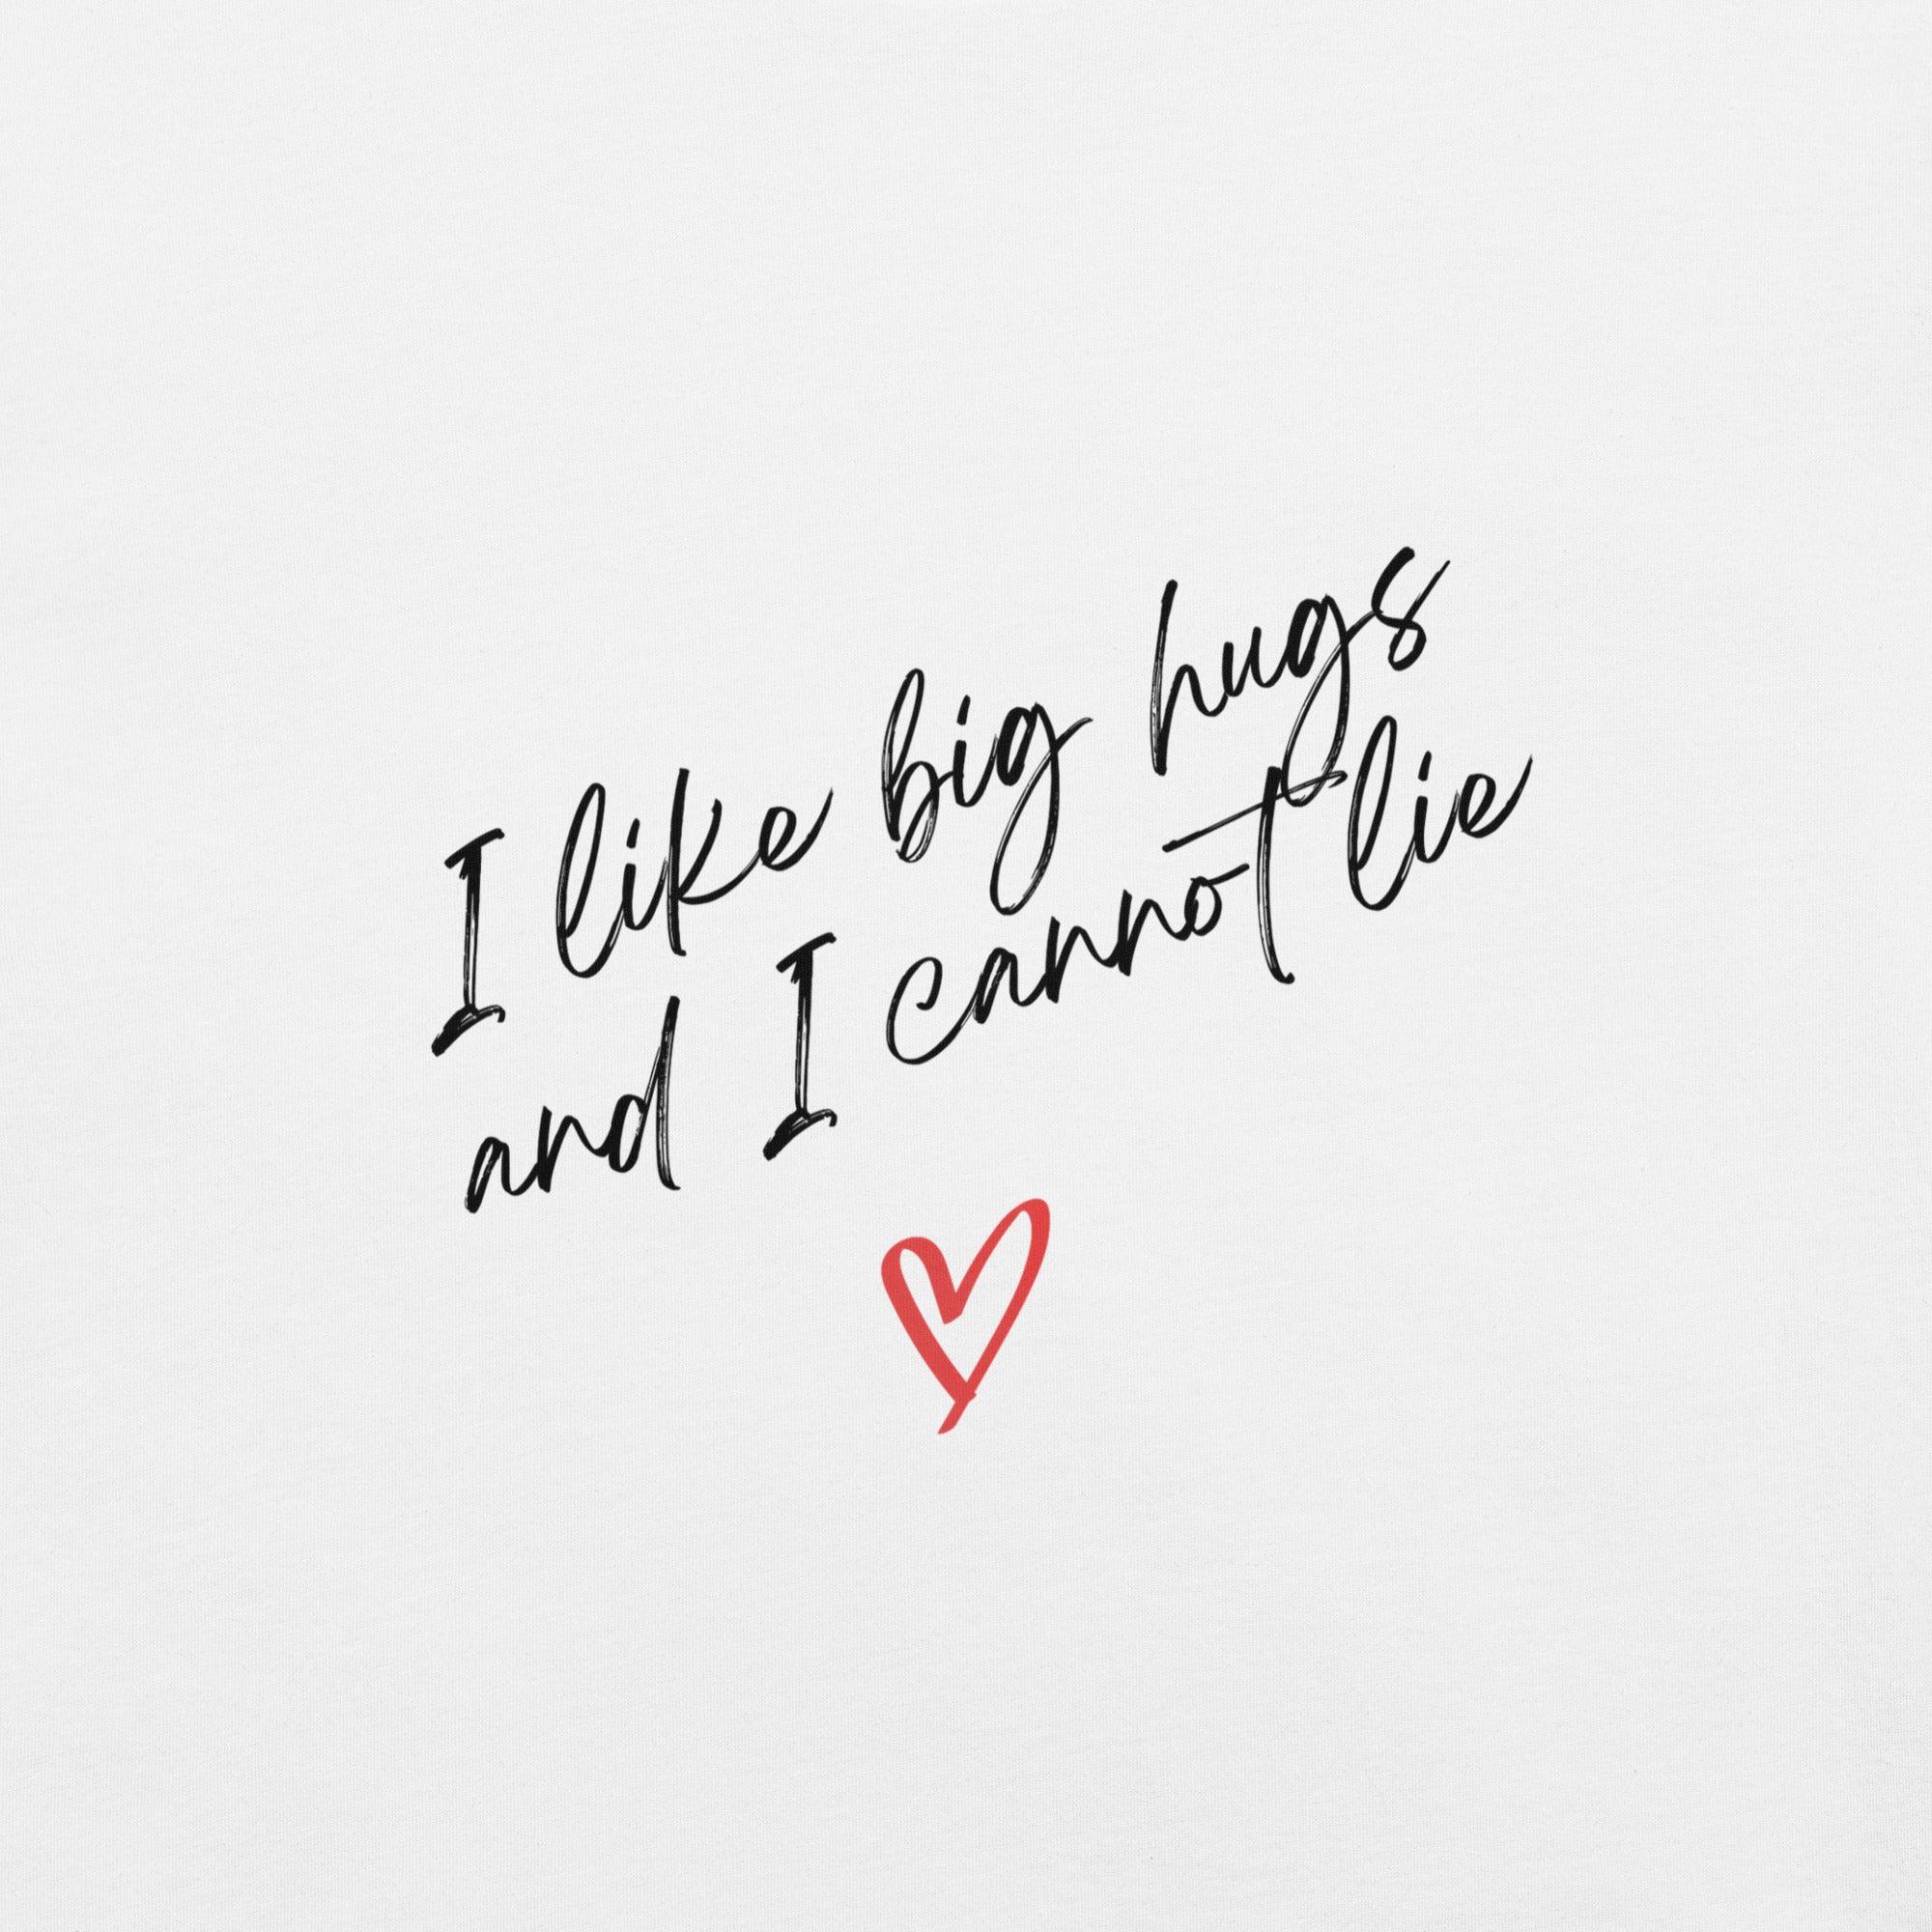 I like big hugs
and I cannot lie